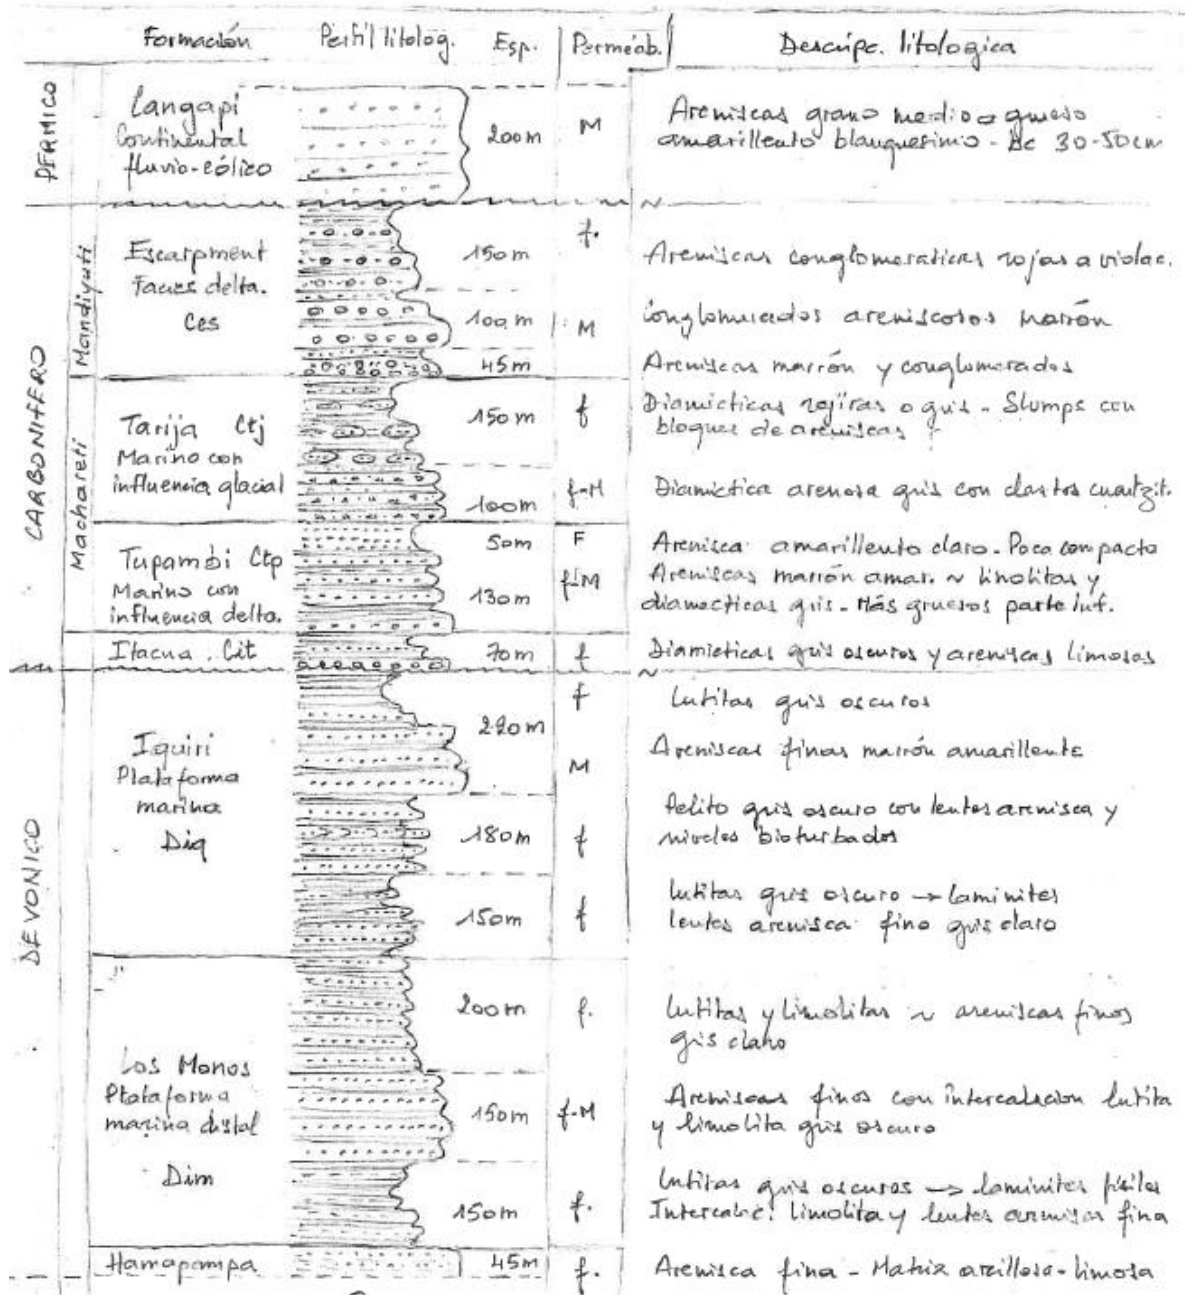 Formación Perfil litolog. Esp. Permeab. Descripc. litologica
PERMICO
Cangapi
Continental
fluvio-eólico
200m M
Areniscas grano medio a grueso
amarillento blanquesimo - de 30-50cm
CARBONIFERO
Mandiyuti
Escarpment
Facies delta.
Ces
150m f.
Areniscas conglomeraticas rojas a violac.
100m M
Conglomerados areniscosos marrón
45m
Areniscas marrón y conglomerados
Machareti
Tarija Ctj
Marino con
influencia glacial
150m f
Diamicticas rojizas o gris - Slumps con
bloques de areniscas
100m f-M
Diamictica arenosa gris con clastos cuartzit.
Tupambi Ctp
Marino con
influencia delta.
50m F
Arenisca amarillento claro. Poca compacto
130m f-M
Areniscas marrón amar. ~ limolitas y
diamecticas gris - Más gruesos parte inf.
Itacua . Cit 70m f
Diamicticas gris oscuros y areniscas limosas
DEVONICO
Iquiri
Plataforma
marina
Diq
220m f
Lutitas gris oscuros
M
Areniscas finas marrón amarillente
180m f
Pelito gris oscuro con lentes arenisca y
niveles bioturbados
150m f
Lutitas gris oscuro → laminites
lentes arenisca fino gris claro
Los Monos
Plataforma
marina distal
Dim
200m f.
Lutitas y limolitas ~ areniscas finos
gris claro
150m f-M
Areniscas finos con intercalacion lutita
y limolita gris oscuro
150m f.
Lutitas gris oscuras → laminites
Intercalac. limolita y lentes arenisca fina
Hamapampa 45m f.
Arenisca fina - Matrix arcillosa-limosa